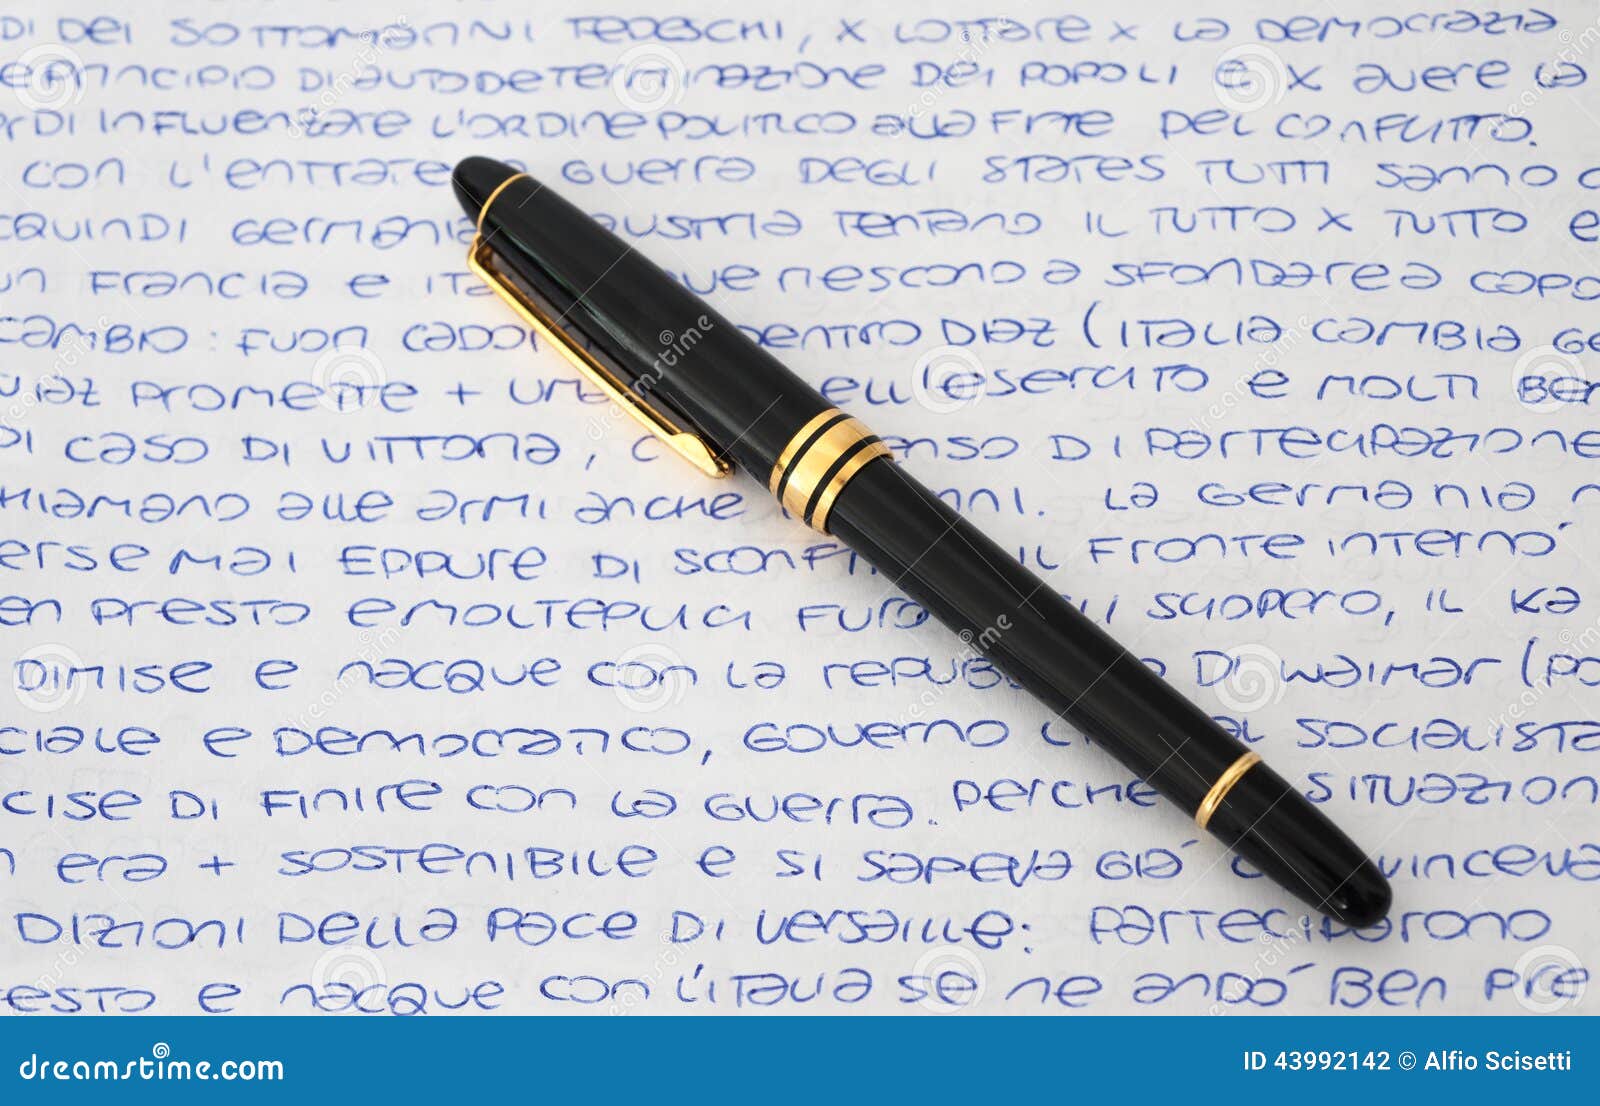 DI DEI SOTTOMARINI TEDESCHI, X LOTTARE X LA DEMOCRAZIA
E PRINCIPIO DI AUTODETERMINAZIONE DEI POPOLI E X AVERE LA
DI INFLUENZARE L'ORDINE POLITICO ALLA FINE DEL CONFLITTO.
CON L'ENTRATA GUERRA DEGLI STATES TUTTI SANNO
QUINDI GERMANIA AUSTRIA TENTANO IL TUTTO X TUTTO E
FRANCIA E RIESCONO A SFONDARE A CAPO
CAMBIO: FUORI CADOR DENTRO DIAZ (ITALIA CAMBIA GE
DIAZ PROMETTE + ELL'ESERCITO E MOLTI BEN
DI CASO DI VITTORIA, DI PARTECIPAZIONE
HIAMANO ALLE ARMI ANCHE NNI. LA GERMANIA
ERSE MAI EPPURE DI SCONFI IL FRONTE INTERNO
EN PRESTO E MOLTEPLICI FURO SCIOPERO, IL KA
DIMISE E NACQUE CON LA REPUBB DI WAIMAR (PO
CIALE E DEMOCRATICO, GOVERNO SOCIALISTA
CISE DI FINIRE CON LA GUERRA. PERCHE SITUAZION
ERA + SOSTENIBILE E SI SAPEVA GIÀ VINCEVA
DIZIONI DELLA PACE DI VERSAILLE: PARTECIPARONO
ESTO E NACQUE CON L'ITALIA SE NE ANDÓ BEN PRE
dreamstime.com
ID 43992142 © Alfio Scisetti